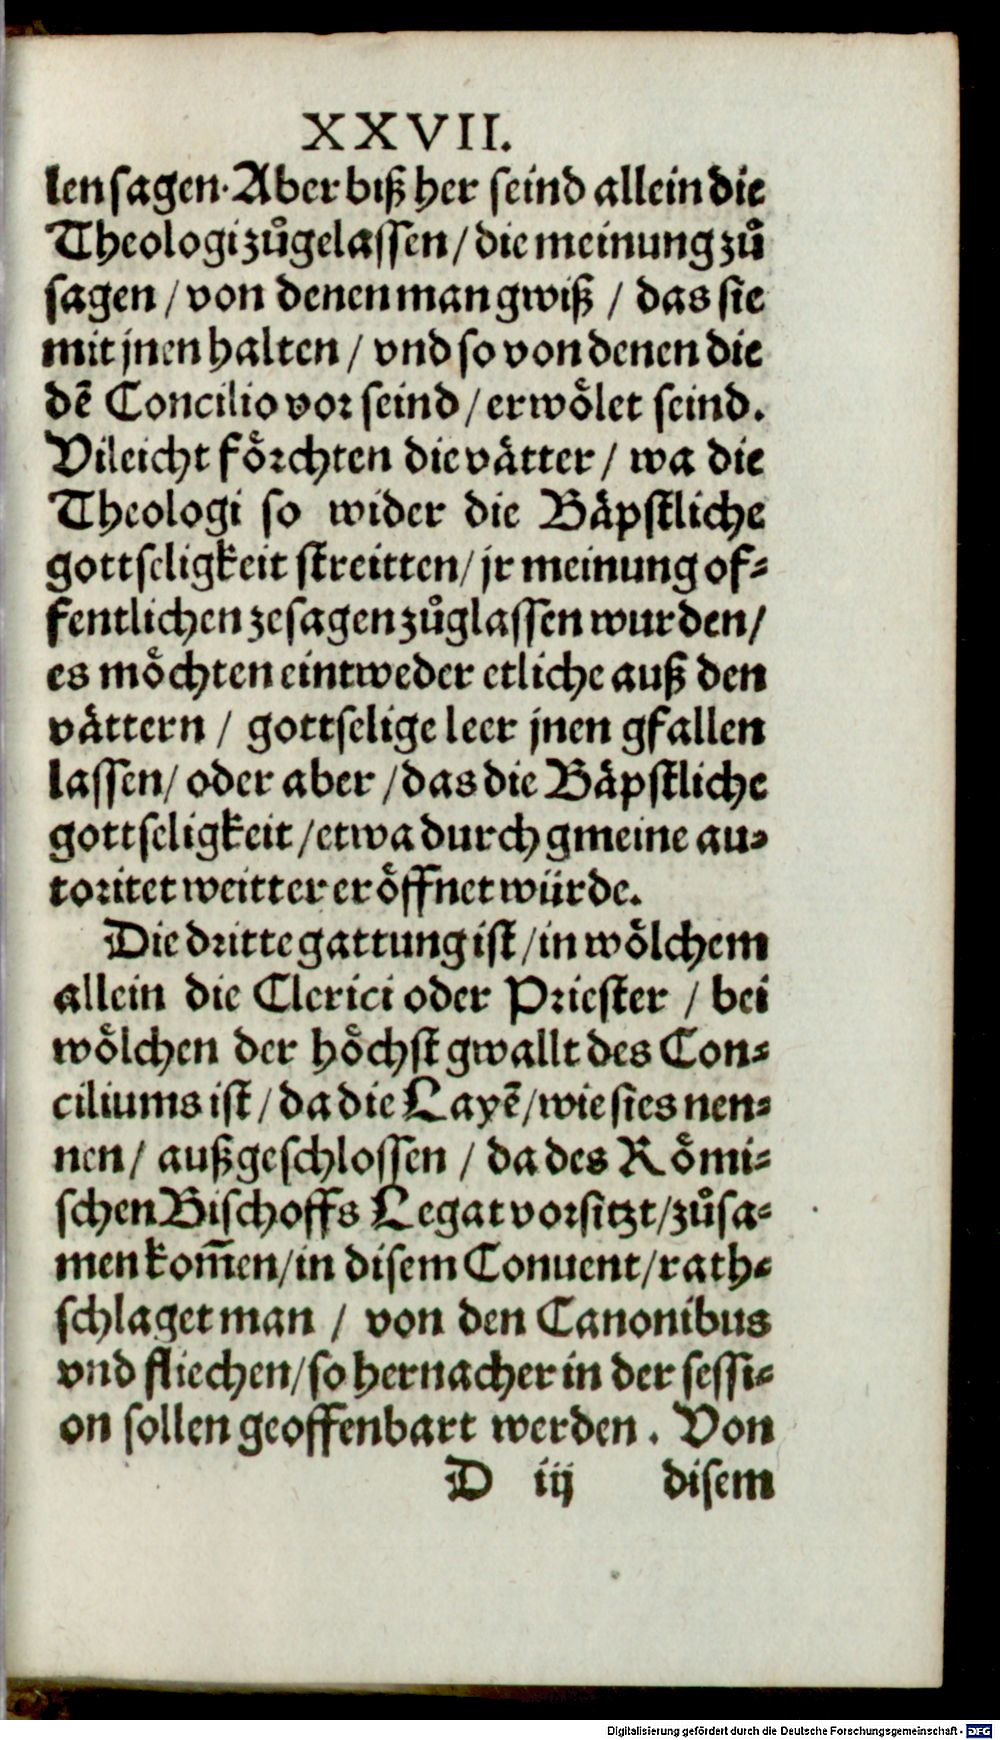 XXVII.
len sagen. Aber biß her seind allein die
Theologi zůgelassen / die meinung zů
sagen / von denen man gwiß / das sie
mit jnen halten / vnd so von denen die
dē Concilio vor seind / erwoͤlet seind.
Vileicht foͤrchten die vaͤtter / wa die
Theologi so wider die Baͤpstliche
gottseligkeit streitten / jr meinung of⸗
fentlichen zesagen zůglassen wurden /
es moͤchten eintweder etliche auß den
vaͤttern / gottselige leer jnen gfallen
lassen / oder aber / das die Baͤpstliche
gottseligkeit / etwa durch gmeine au⸗
toritet weitter eroͤffnet würde.
Die dritte gattung ist / in woͤlchem
allein die Clerici oder Priester / bei
woͤlchen der hoͤchst gwallt des Con⸗
ciliums ist / da die Layē / wie sies nen⸗
nen / außgeschlossen / da des Roͤmi⸗
schen Bischoffs Legat vorsitzt / zůsa⸗
men kom̄en / in disem Conuent / rath⸗
schlaget man / von den Canonibus
vnd fliechen / so hernacher in der sessi⸗
on sollen geoffenbart werden. Von
D iij disem
Digitalisierung gefördert durch die Deutsche Forschungsgemeinschaft - DFG